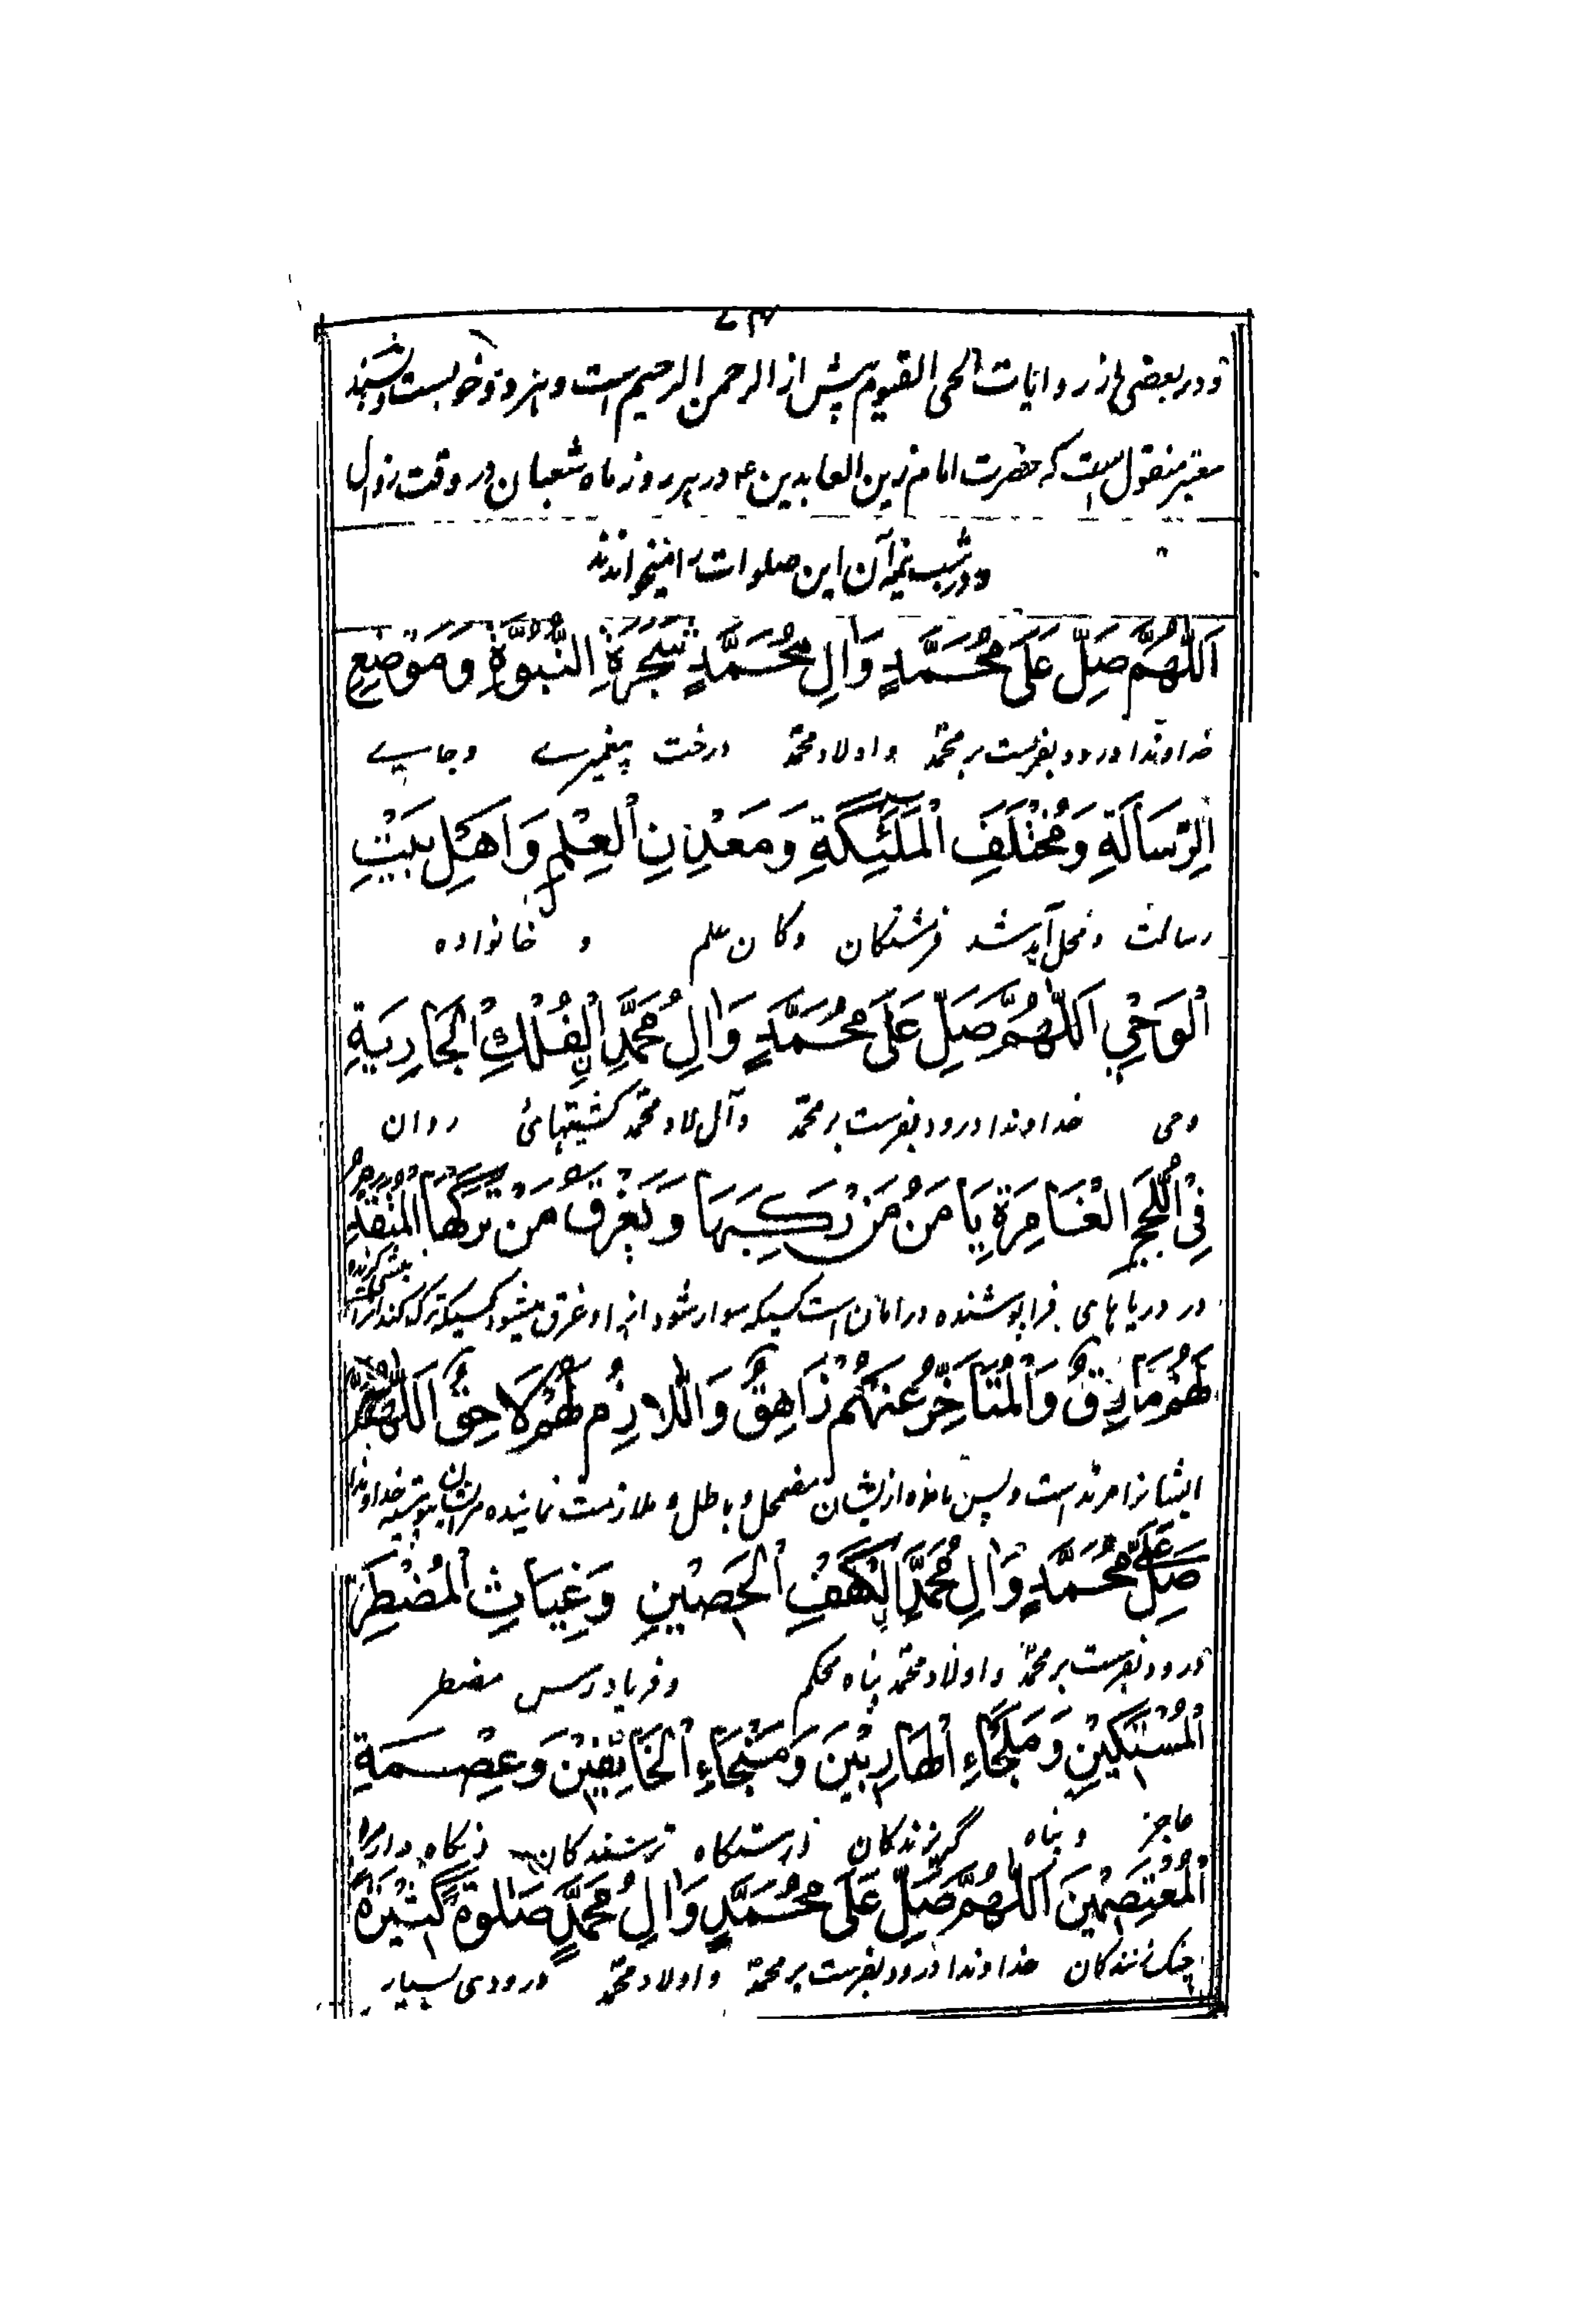 و در بعضی از روایات الحی القیوم پیش از الرحمن الرحیم است و هر دو خوبست و بسند
معتبر منقول است که حضرت امام زین العابدین ع در هر روز ماه شعبان در وقت زوال
و در شب نیمه آن این صلوات را میخواندند
اَللّٰهُمَّ صَلِّ عَلٰى مُحَمَّدٍ وَاٰلِ مُحَمَّدٍ شَجَرَةِ النُّبُوَّةِ وَمَوْضِعِ
خداوندا درود بفرست بر محمّد و اولاد محمّد درخت پیغمبرے و جاے
الرِّسَالَةِ وَمُخْتَلَفِ الْمَلٰٓئِكَةِ وَمَعْدِنِ الْعِلْمِ وَاَهْلِ بَيْتِ
رسالت و محل آمد شد فرشتکان و کان علم و خانواده
الْوَحْيِ اَللّٰهُمَّ صَلِّ عَلٰى مُحَمَّدٍ وَاٰلِ مُحَمَّدٍ الْفُلْكِ الْجَارِيَةِ
وحی خداوندا درود بفرست بر محمّد و آل محمّد کشتیهائ روان
فِى اللُّجَجِ الْغَامِرَةِ يَامَنُ مَنْ رَكِبَهَا وَيَغْرَقُ مَنْ تَرَكَهَا الْمُتَقَدِّمُ
در دریاهای فراپوشنده در امان است کسیکه سوار شود انرا و غرق میشود کسیکه ترک کند انرا
لَهُمْ مَارِقٌ وَالْمُتَاَخِّرُ عَنْهُمْ زَاهِقٌ وَاللَّازِمُ لَهُمْ لَاحِقٌ اَللّٰهُمَّ
ایشانرا مرتد است و پس مانده از ایشان مضمحل و باطل و ملازمت نماینده مر ایشان پیوسته خداوندا
صَلِّ عَلٰى مُحَمَّدٍ وَاٰلِ مُحَمَّدٍ الْكَهْفِ الْحَصِيْنِ وَغِيَاثِ الْمُضْطَرِّ
درود بفرست بر محمّد و اولاد محمّد پناه محکم و فریادرس مضطر
الْمُسْتَكِيْنِ وَمَلْجَاءِ الْهَارِبِيْنَ وَمَنْجَاءِ الْخَائِفِيْنَ وَعِصْمَةِ
عاجز و پناه گریزندکان و رستکاه ترسندکان و نکاه دار
الْمُعْتَصِمِيْنَ اَللّٰهُمَّ صَلِّ عَلٰى مُحَمَّدٍ وَاٰلِ مُحَمَّدٍ صَلٰوةً كَثِيْرَةً
چنک زنندکان خداوندا درود بفرست بر محمّد و اولاد محمّد درودی بسیار